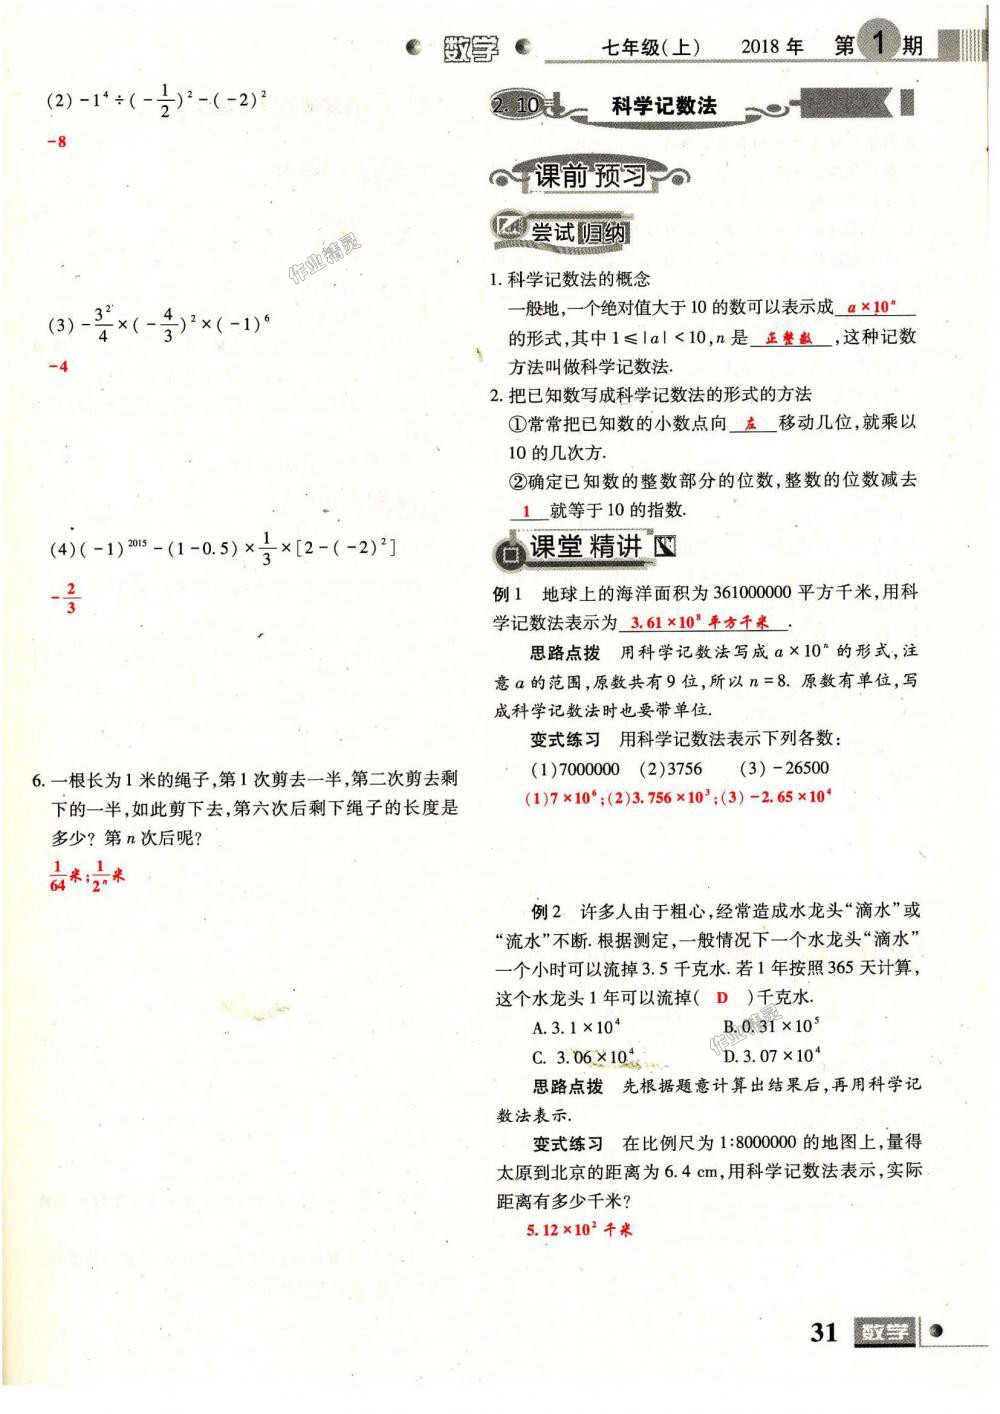 数学 七年级(上) 2018年 第1期
(2)-1⁴÷(-1/2)²-(-2)²
-8
(3)-3²/4×(-4/3)²×(-1)⁶
-4
(4)(-1)²⁰¹⁵-(1-0.5)×1/3×[2-(-2)²]
-2/3
6. 一根长为1米的绳子,第1次剪去一半,第二次剪去剩
下的一半,如此剪下去,第六次后剩下绳子的长度是
多少? 第n次后呢?
1/64米;1/2ⁿ米
2.10 科学记数法
课前预习
尝试归纳
1. 科学记数法的概念
一般地,一个绝对值大于10的数可以表示成 a×10ⁿ
的形式,其中1≤|a|<10,n是 正整数 ,这种记数
方法叫做科学记数法.
2. 把已知数写成科学记数法的形式的方法
①常常把已知数的小数点向 左 移动几位,就乘以
10的几次方.
②确定已知数的整数部分的位数,整数的位数减去
1 就等于10的指数.
课堂精讲
例1 地球上的海洋面积为361000000平方千米,用科
学记数法表示为 3.61×10⁸平方千米 .
思路点拨 用科学记数法写成a×10ⁿ的形式,注
意a的范围,原数共有9位,所以n=8. 原数有单位,写
成科学记数法时也要带单位.
变式练习 用科学记数法表示下列各数:
(1)7000000 (2)3756 (3)-26500
(1)7×10⁶;(2)3.756×10³;(3)-2.65×10⁴
例2 许多人由于粗心,经常造成水龙头“滴水”或
“流水”不断. 根据测定,一般情况下一个水龙头“滴水”
一个小时可以流掉3.5千克水. 若1年按照365天计算,
这个水龙头1年可以流掉( D )千克水.
A. 3.1×10⁴ B. 0.31×10⁵
C. 3.06×10⁴ D. 3.07×10⁴
思路点拨 先根据题意计算出结果后,再用科学记
数法表示.
变式练习 在比例尺为1∶8000000的地图上,量得
太原到北京的距离为6.4 cm,用科学记数法表示,实际
距离有多少千米?
5.12×10²千米
31 数学
作业精灵
作业精灵